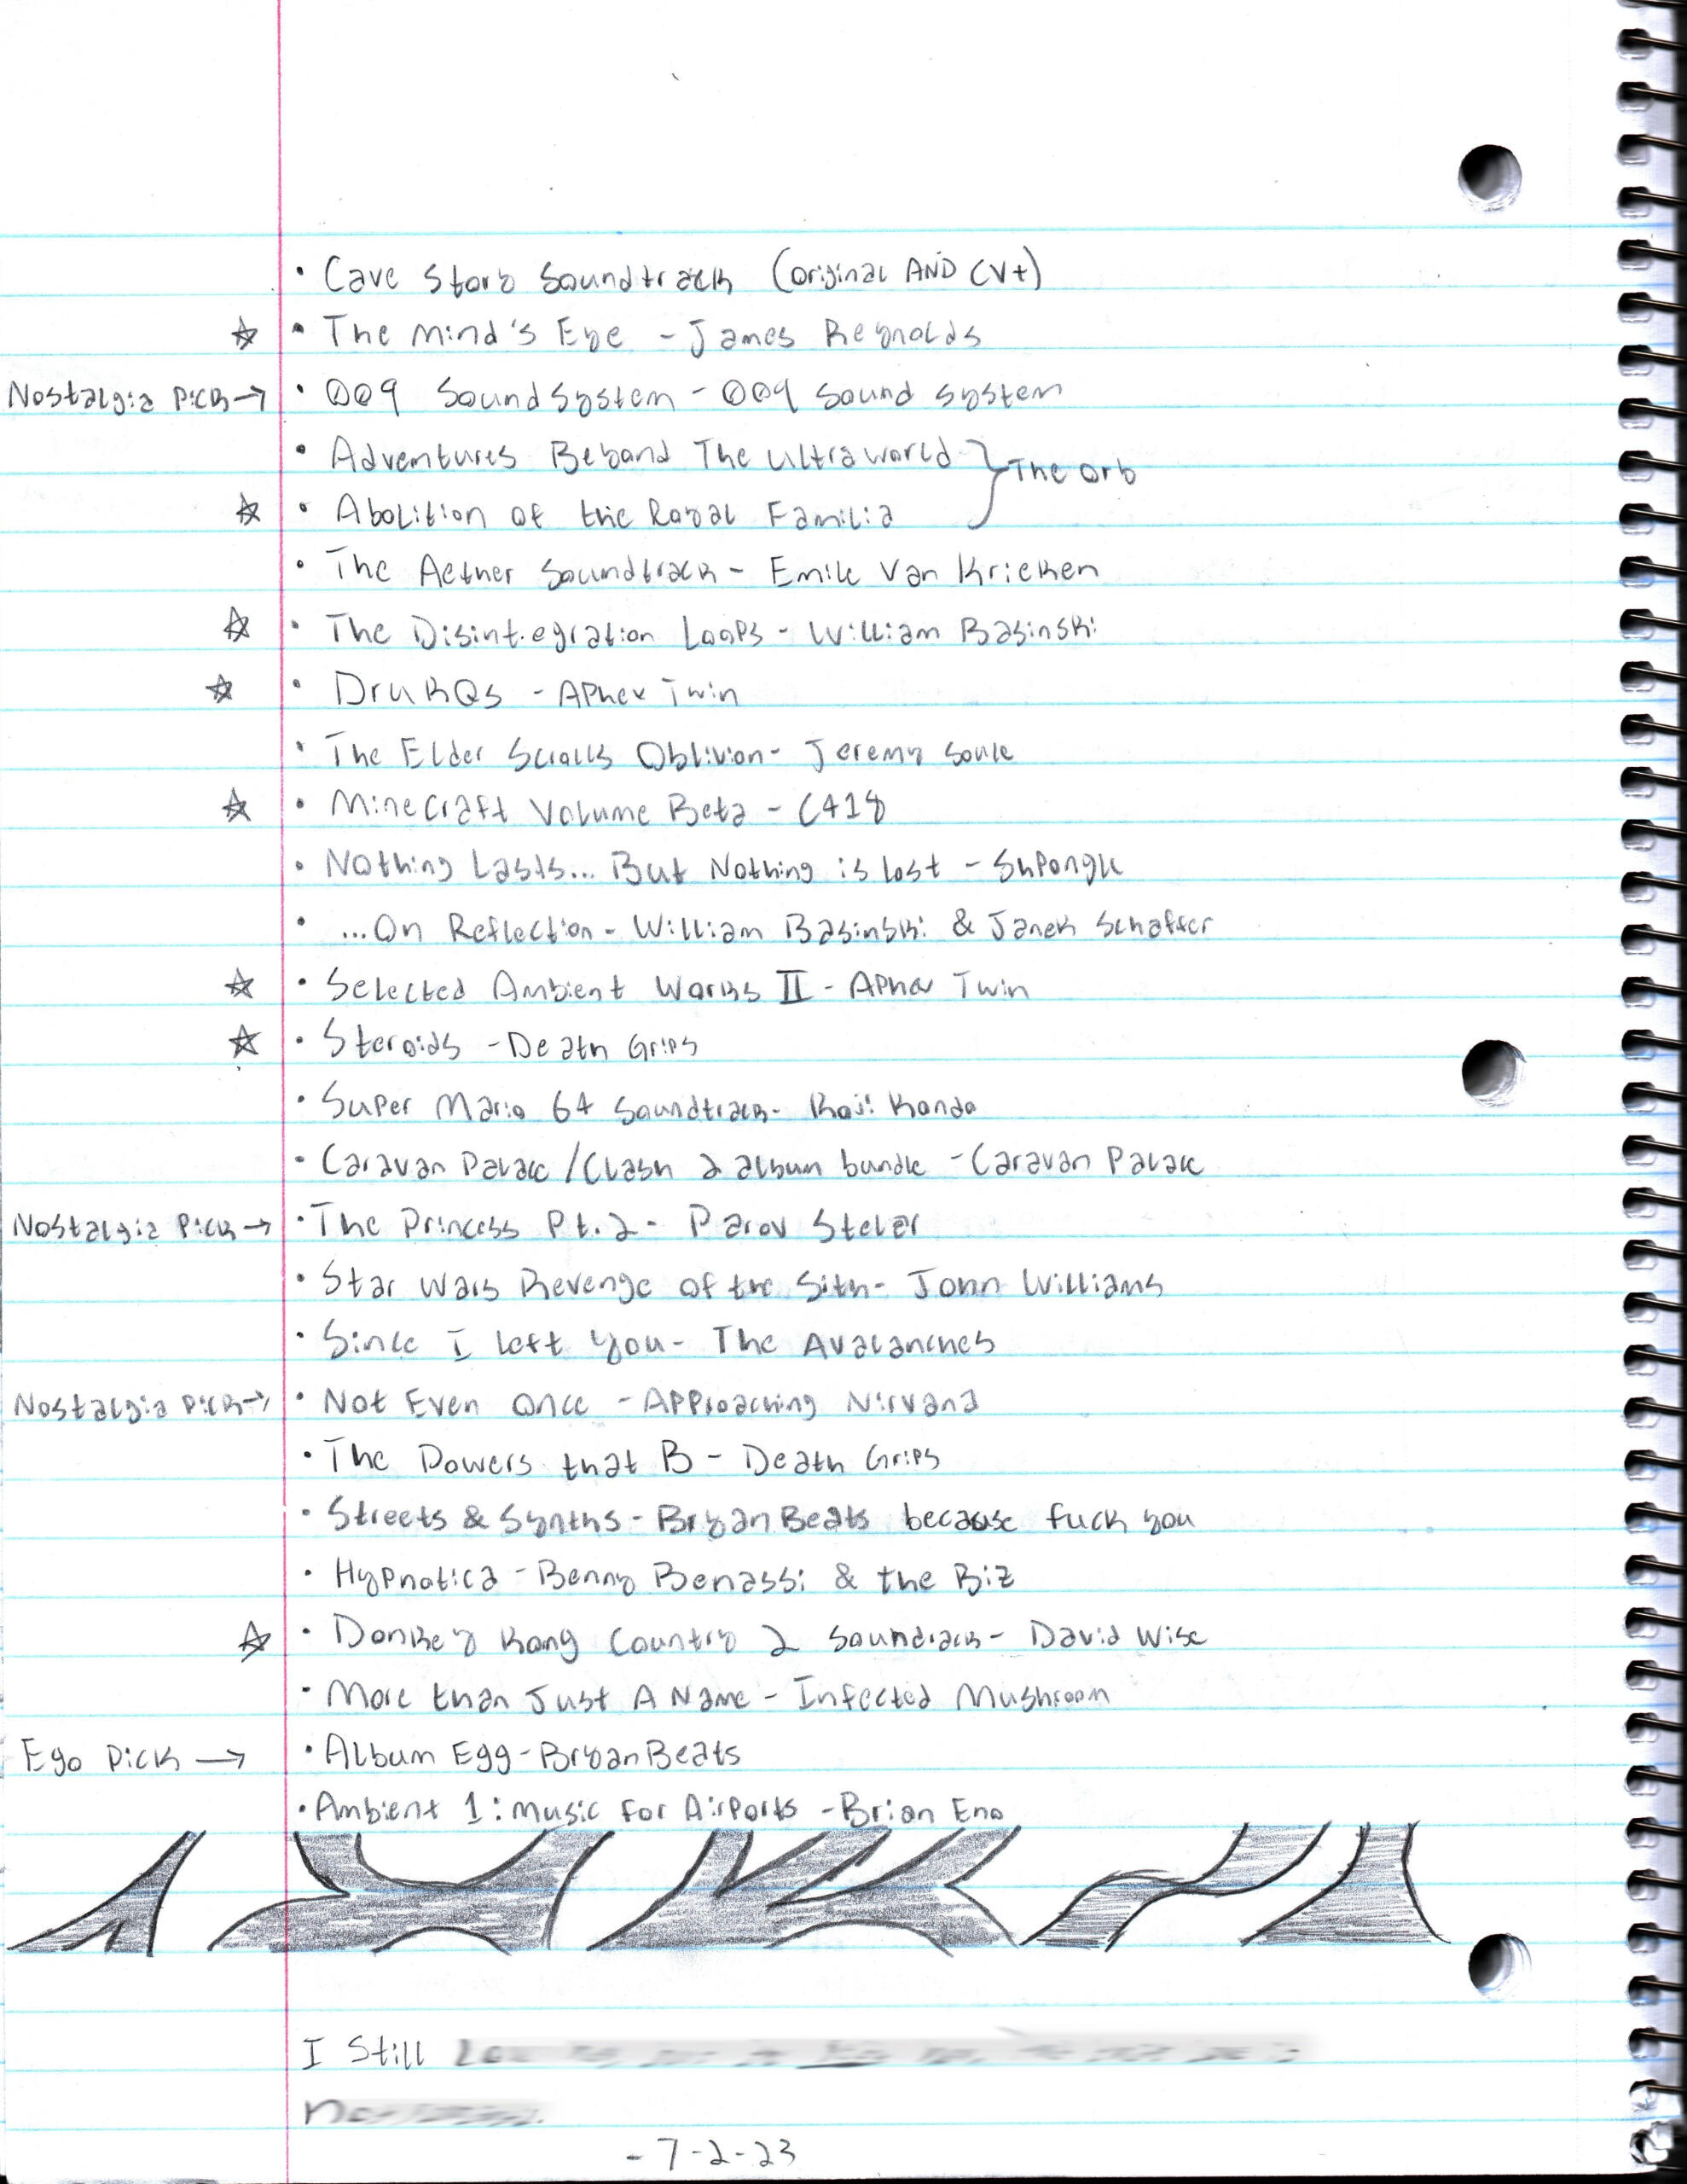 • Cave Story Soundtrack (Original AND CV+)
☆ • The Mind's Eye - James Reynolds
Nostalgia Pick → • 009 SoundSystem - 009 Sound System
• Adventures Beyond The Ultraworld } The Orb
☆ • Abolition of the Royal Familia
• The Aether Soundtrack - Emile Van Krieken
☆ • The Disintegration Loops - William Basinski
☆ • DrukQs - Aphex Twin
• The Elder Scrolls Oblivion - Jeremy Soule
☆ • Minecraft Volume Beta - C418
• Nothing Lasts... But Nothing is lost - Shpongle
• ...On Reflection - William Basinski & Janek Schaffer
☆ • Selected Ambient Works II - Aphex Twin
☆ • Steroids - Death Grips
• Super Mario 64 Soundtrack - Koji Kondo
• Caravan Palace / Clash 2 album bundle - Caravan Palace
Nostalgia Pick → • The Princess Pt. 2 - Parov Stelar
• Star Wars Revenge of the Sith - John Williams
• Since I left You - The Avalanches
Nostalgia Pick → • Not Even Once - Approaching Nirvana
• The Powers that B - Death Grips
• Streets & Synths - BryanBeats because fuck you
• Hypnotica - Benny Benassi & the Biz
☆ • Donkey Kong Country 2 Soundrack - David Wise
• More than Just A Name - Infected Mushroom
Ego Pick → • Album Egg - BryanBeats
• Ambient 1: Music For Airports - Brian Eno
I Still
- 7-2-23